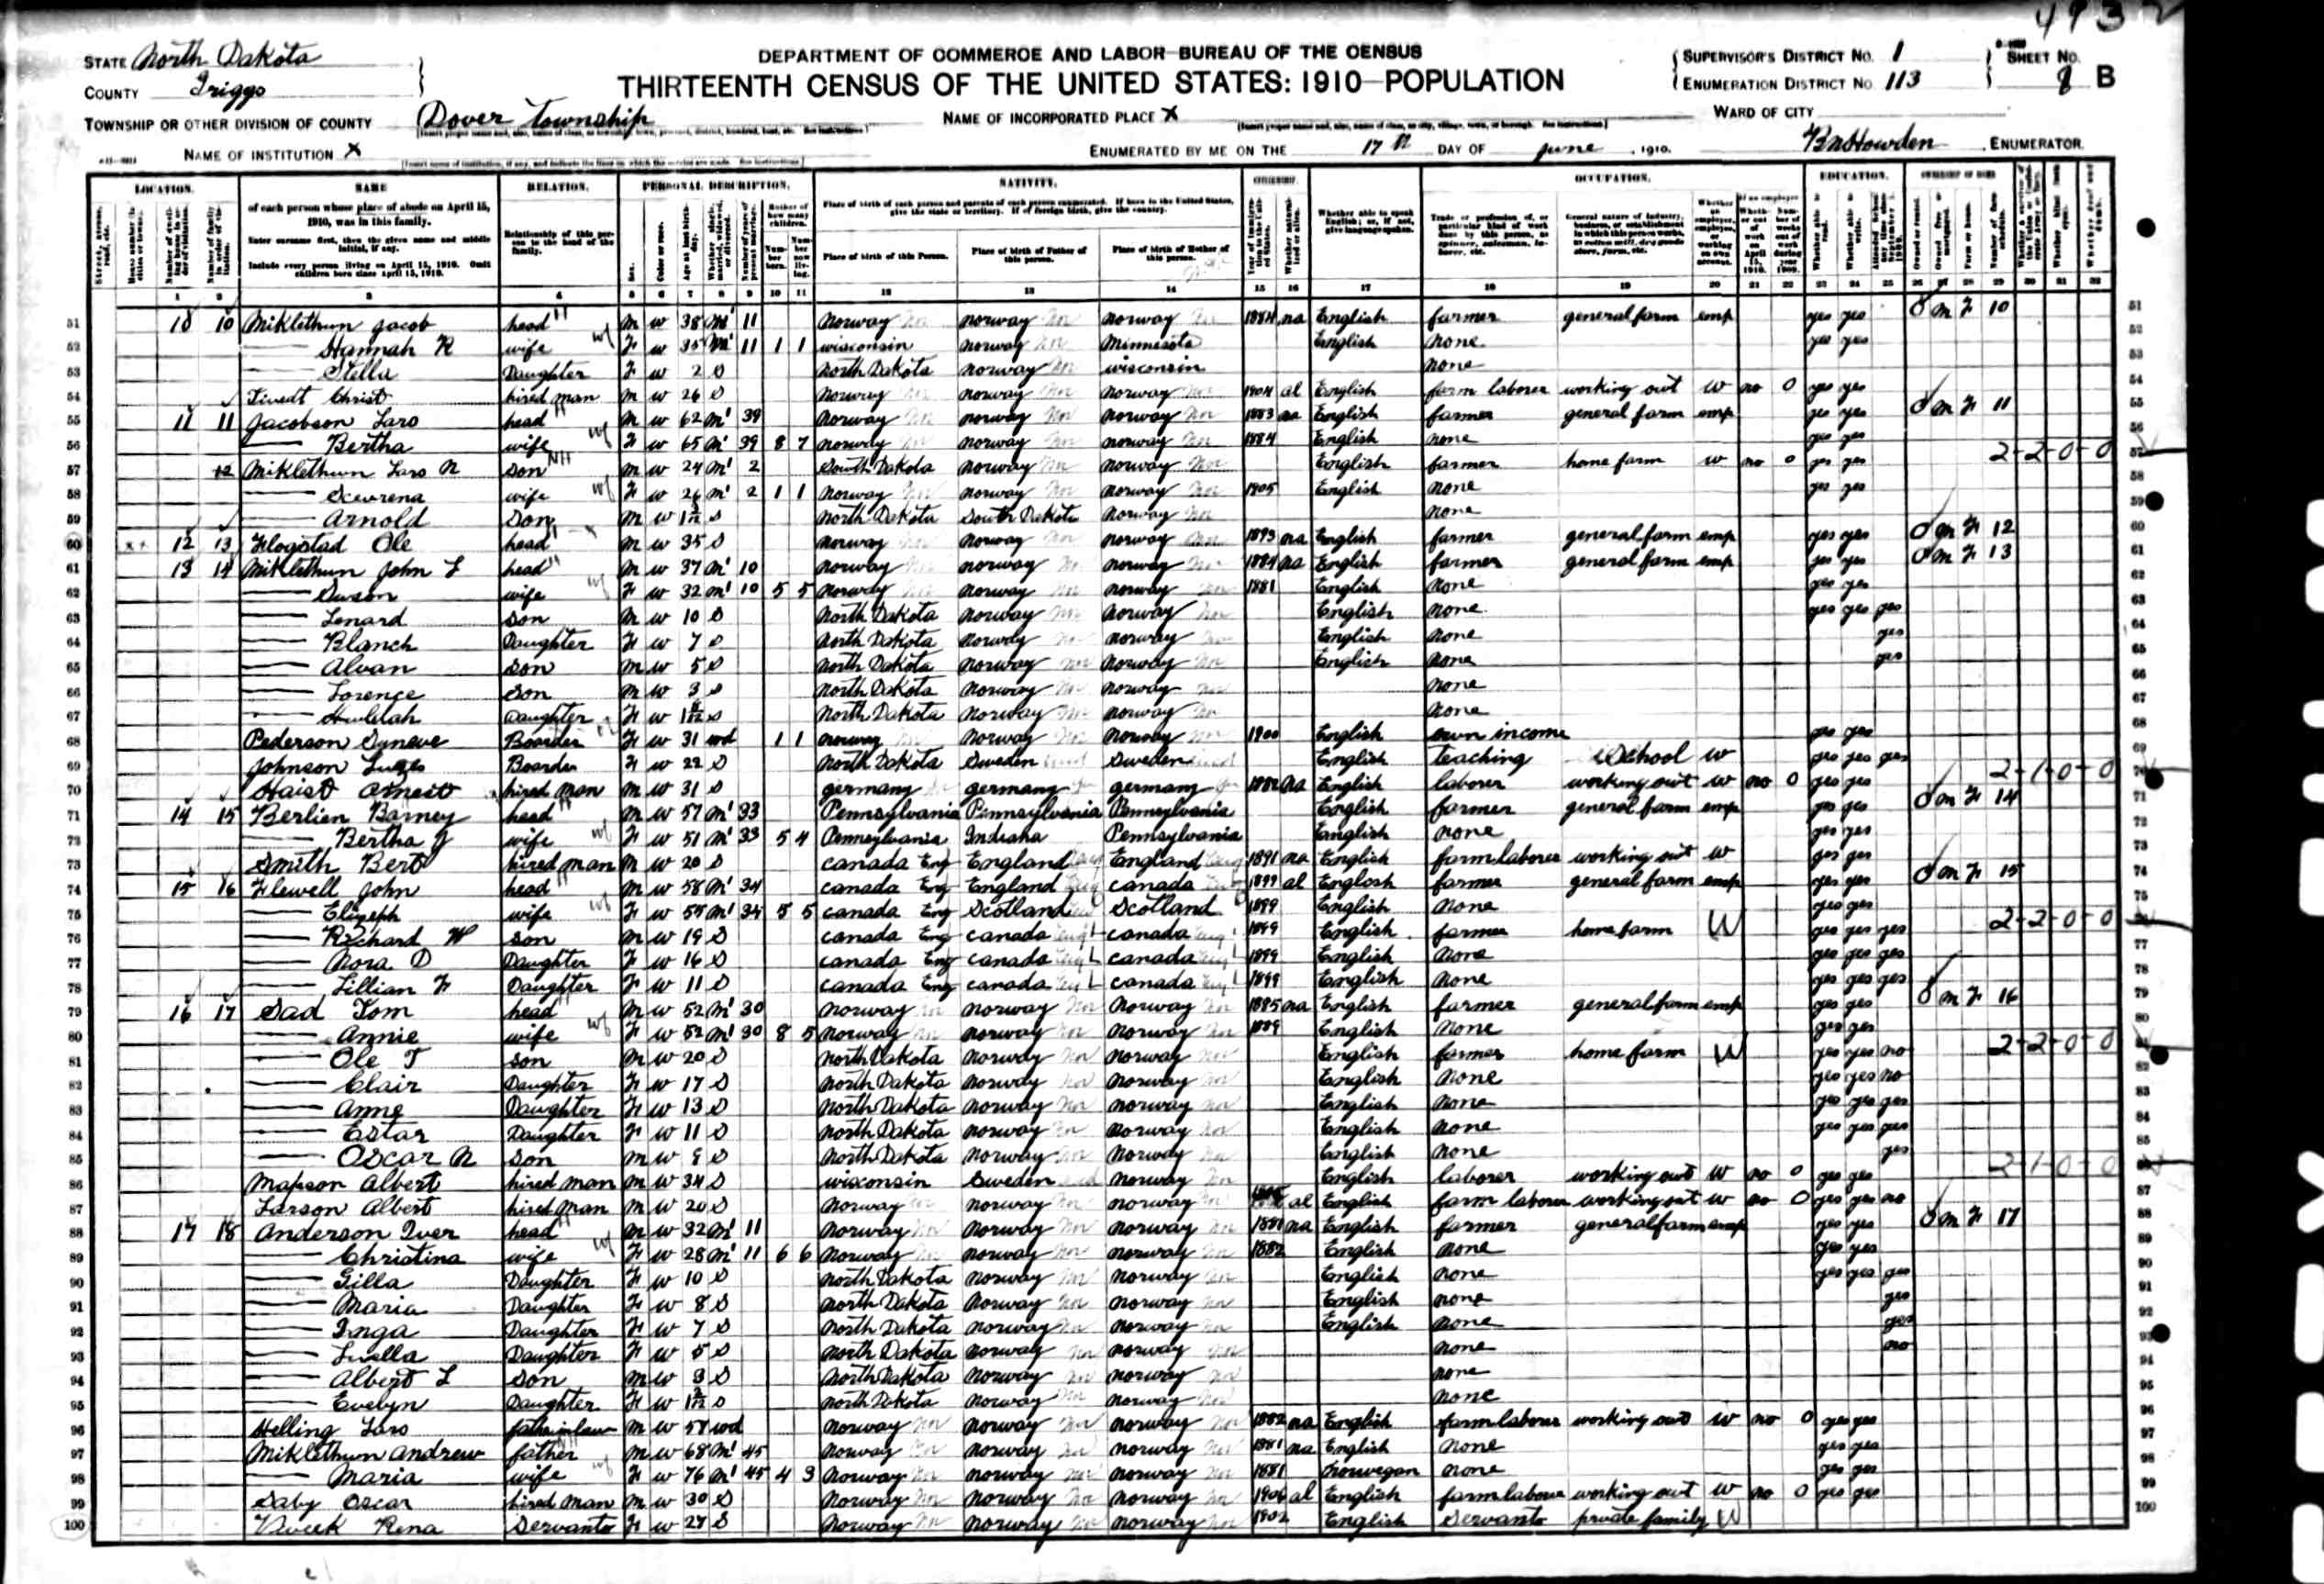 4932
STATE North Dakota
COUNTY Griggs
TOWNSHIP OR OTHER DIVISION OF COUNTY Dover Township
NAME OF INSTITUTION X
DEPARTMENT OF COMMERCE AND LABOR—BUREAU OF THE CENSUS
THIRTEENTH CENSUS OF THE UNITED STATES: 1910—POPULATION
NAME OF INCORPORATED PLACE X
ENUMERATED BY ME ON THE 17th DAY OF June, 1910.
SUPERVISOR'S DISTRICT No. 1
ENUMERATION DISTRICT No. 113
SHEET No. B
WARD OF CITY
ENUMERATOR.
LOCATION. NAME RELATION. PERSONAL DESCRIPTION. NATIVITY. CITIZENSHIP. OCCUPATION. EDUCATION. OWNERSHIP OF HOME.
of each person whose place of abode on April 15, 1910, was in this family.
Enter surname first, then the given name and middle initial, if any.
Include every person living on April 15, 1910. Omit children born since April 15, 1910.
Relationship of this person to the head of the family.
Place of birth of each person and parents of each person enumerated. If born in the United States, give the state or territory. If of foreign birth, give the country.
Place of birth of this Person. Place of birth of Father of this person. Place of birth of Mother of this person.
Whether able to speak English; or, if not, give language spoken.
51 10 10 Miklethun Jacob head m w 38 m1 11 Norway norway norway 1884 na English farmer general farm emp yes yes O m F 10
52 Hannah R wife F w 35 m1 11 1 1 wisconsin norway Minnesota English none yes yes
53 Stella Daughter F w 2 S North Dakota norway wisconsin none
54 Christ hired man m w 26 S Norway norway Norway 1904 al English farm laborer working out w no 0 yes yes
55 11 11 Jacobson Lars head m w 62 m1 39 Norway norway norway 1883 na English farmer general farm emp yes yes O m F 11
56 Bertha wife F w 65 m1 39 8 7 norway norway norway 1884 English none yes yes
57 12 Miklethun Lars N son m w 24 m1 2 South Dakota norway norway English farmer home farm w no 0 yes yes 2-2-0-0
58 wife F w 26 m1 2 1 1 Norway norway Norway 1905 English none yes yes
59 Arnold son m w S North Dakota South Dakota Norway none
60 12 13 Flogstad Ole head m w 35 S norway norway norway 1893 na English farmer general farm emp yes yes O m F 12
61 13 14 Miklethun John L head m w 37 m1 10 norway norway norway 1884 na English farmer general farm emp yes yes O m F 13
62 Susan wife F w 32 m1 10 5 5 norway norway norway 1881 English none yes yes
63 Lenard son m w 10 S North Dakota Norway Norway English none yes yes yes
64 Blanch Daughter F w 7 S North Dakota norway norway English none yes
65 Alvan son m w 5 S North Dakota norway norway English none yes
66 Lorence son m w 3 S North Dakota norway norway none
67 Daughter F w S North Dakota norway norway none
68 Pederson Syneve Boarder F w 31 wd 1 1 norway norway norway 1900 English own income yes yes
69 Johnson Boarder F w 22 S North Dakota Sweden Sweden English teaching School w yes yes yes
70 Haist hired man m w 31 S germany germany germany 1882 na English laborer working out w no 0 yes yes 2-1-0-0
71 14 15 Berlien Barney head m w 57 m1 33 Pennsylvania Pennsylvania Pennsylvania English farmer general farm emp yes yes O m F 14
72 Bertha J wife F w 51 m1 33 5 4 Pennsylvania Indiana Pennsylvania English none yes yes
73 Smith Bert hired man m w 20 S canada Eng England England 1891 na English farm laborer working out w yes yes
74 15 16 Flewell John head m w 58 m1 34 canada Eng England canada 1899 al English farmer general farm emp yes yes O m F 15
75 wife F w 55 m1 34 5 5 canada Eng Scotland Scotland 1899 English none yes yes
76 Richard W son m w 19 S canada Eng canada canada 1899 English farmer home farm W yes yes yes 2-2-0-0
77 Nora D Daughter F w 16 S canada Eng canada canada 1899 English none yes yes yes
78 Lillian F Daughter F w 11 S canada Eng canada canada 1899 English none yes yes yes
79 16 17 Sad Tom head m w 52 m1 30 norway norway Norway 1885 na English farmer general farm emp yes yes O m F 16
80 Annie wife F w 52 m1 30 8 5 norway norway norway 1889 English none yes yes
81 Ole T son m w 20 S North Dakota norway norway English farmer home farm W yes yes no 2-2-0-0
82 Clair Daughter F w 17 S North Dakota norway norway English none yes yes no
83 Anne Daughter F w 13 S North Dakota norway norway English none yes yes yes
84 Estar Daughter F w 11 S North Dakota norway norway English none yes yes yes
85 Oscar N son m w 8 S North Dakota norway norway English none yes
86 Albert hired man m w 34 S wisconsin Sweden norway English laborer working out w no 0 yes yes 2-1-0-0
87 Larson Albert hired man m w 20 S Norway norway norway al English farm laborer working out w no 0 yes yes no
88 17 18 Anderson Iver head m w 32 m1 11 Norway norway norway na English farmer general farm emp yes yes O m F 17
89 Christina wife F w 28 m1 11 6 6 Norway norway norway 1882 English none yes yes
90 Gilla Daughter F w 10 S North Dakota norway norway English none yes yes yes
91 Maria Daughter F w 8 S North Dakota norway norway English none yes
92 Inga Daughter F w 7 S North Dakota norway norway English none yes
93 Luella Daughter F w 5 S North Dakota norway norway none no
94 Albert L son m w 3 S North Dakota norway norway none
95 Evelyn Daughter F w S north Dakota norway norway none
96 Helling Lars father in law m w wd norway norway norway 1882 na English farm laborer working out w no 0 yes yes
97 Miklethun Andrew father m w 68 m1 45 norway norway norway 1881 na English none yes yes
98 Maria wife F w 76 m1 45 4 3 Norway norway norway 1881 norwegan none yes yes
99 Saby Oscar hired man m w 30 S Norway Norway norway 1906 al English farm laborer working out w no 0 yes yes
100 Rena Servant F w S Norway norway norway 1902 English servant private family W